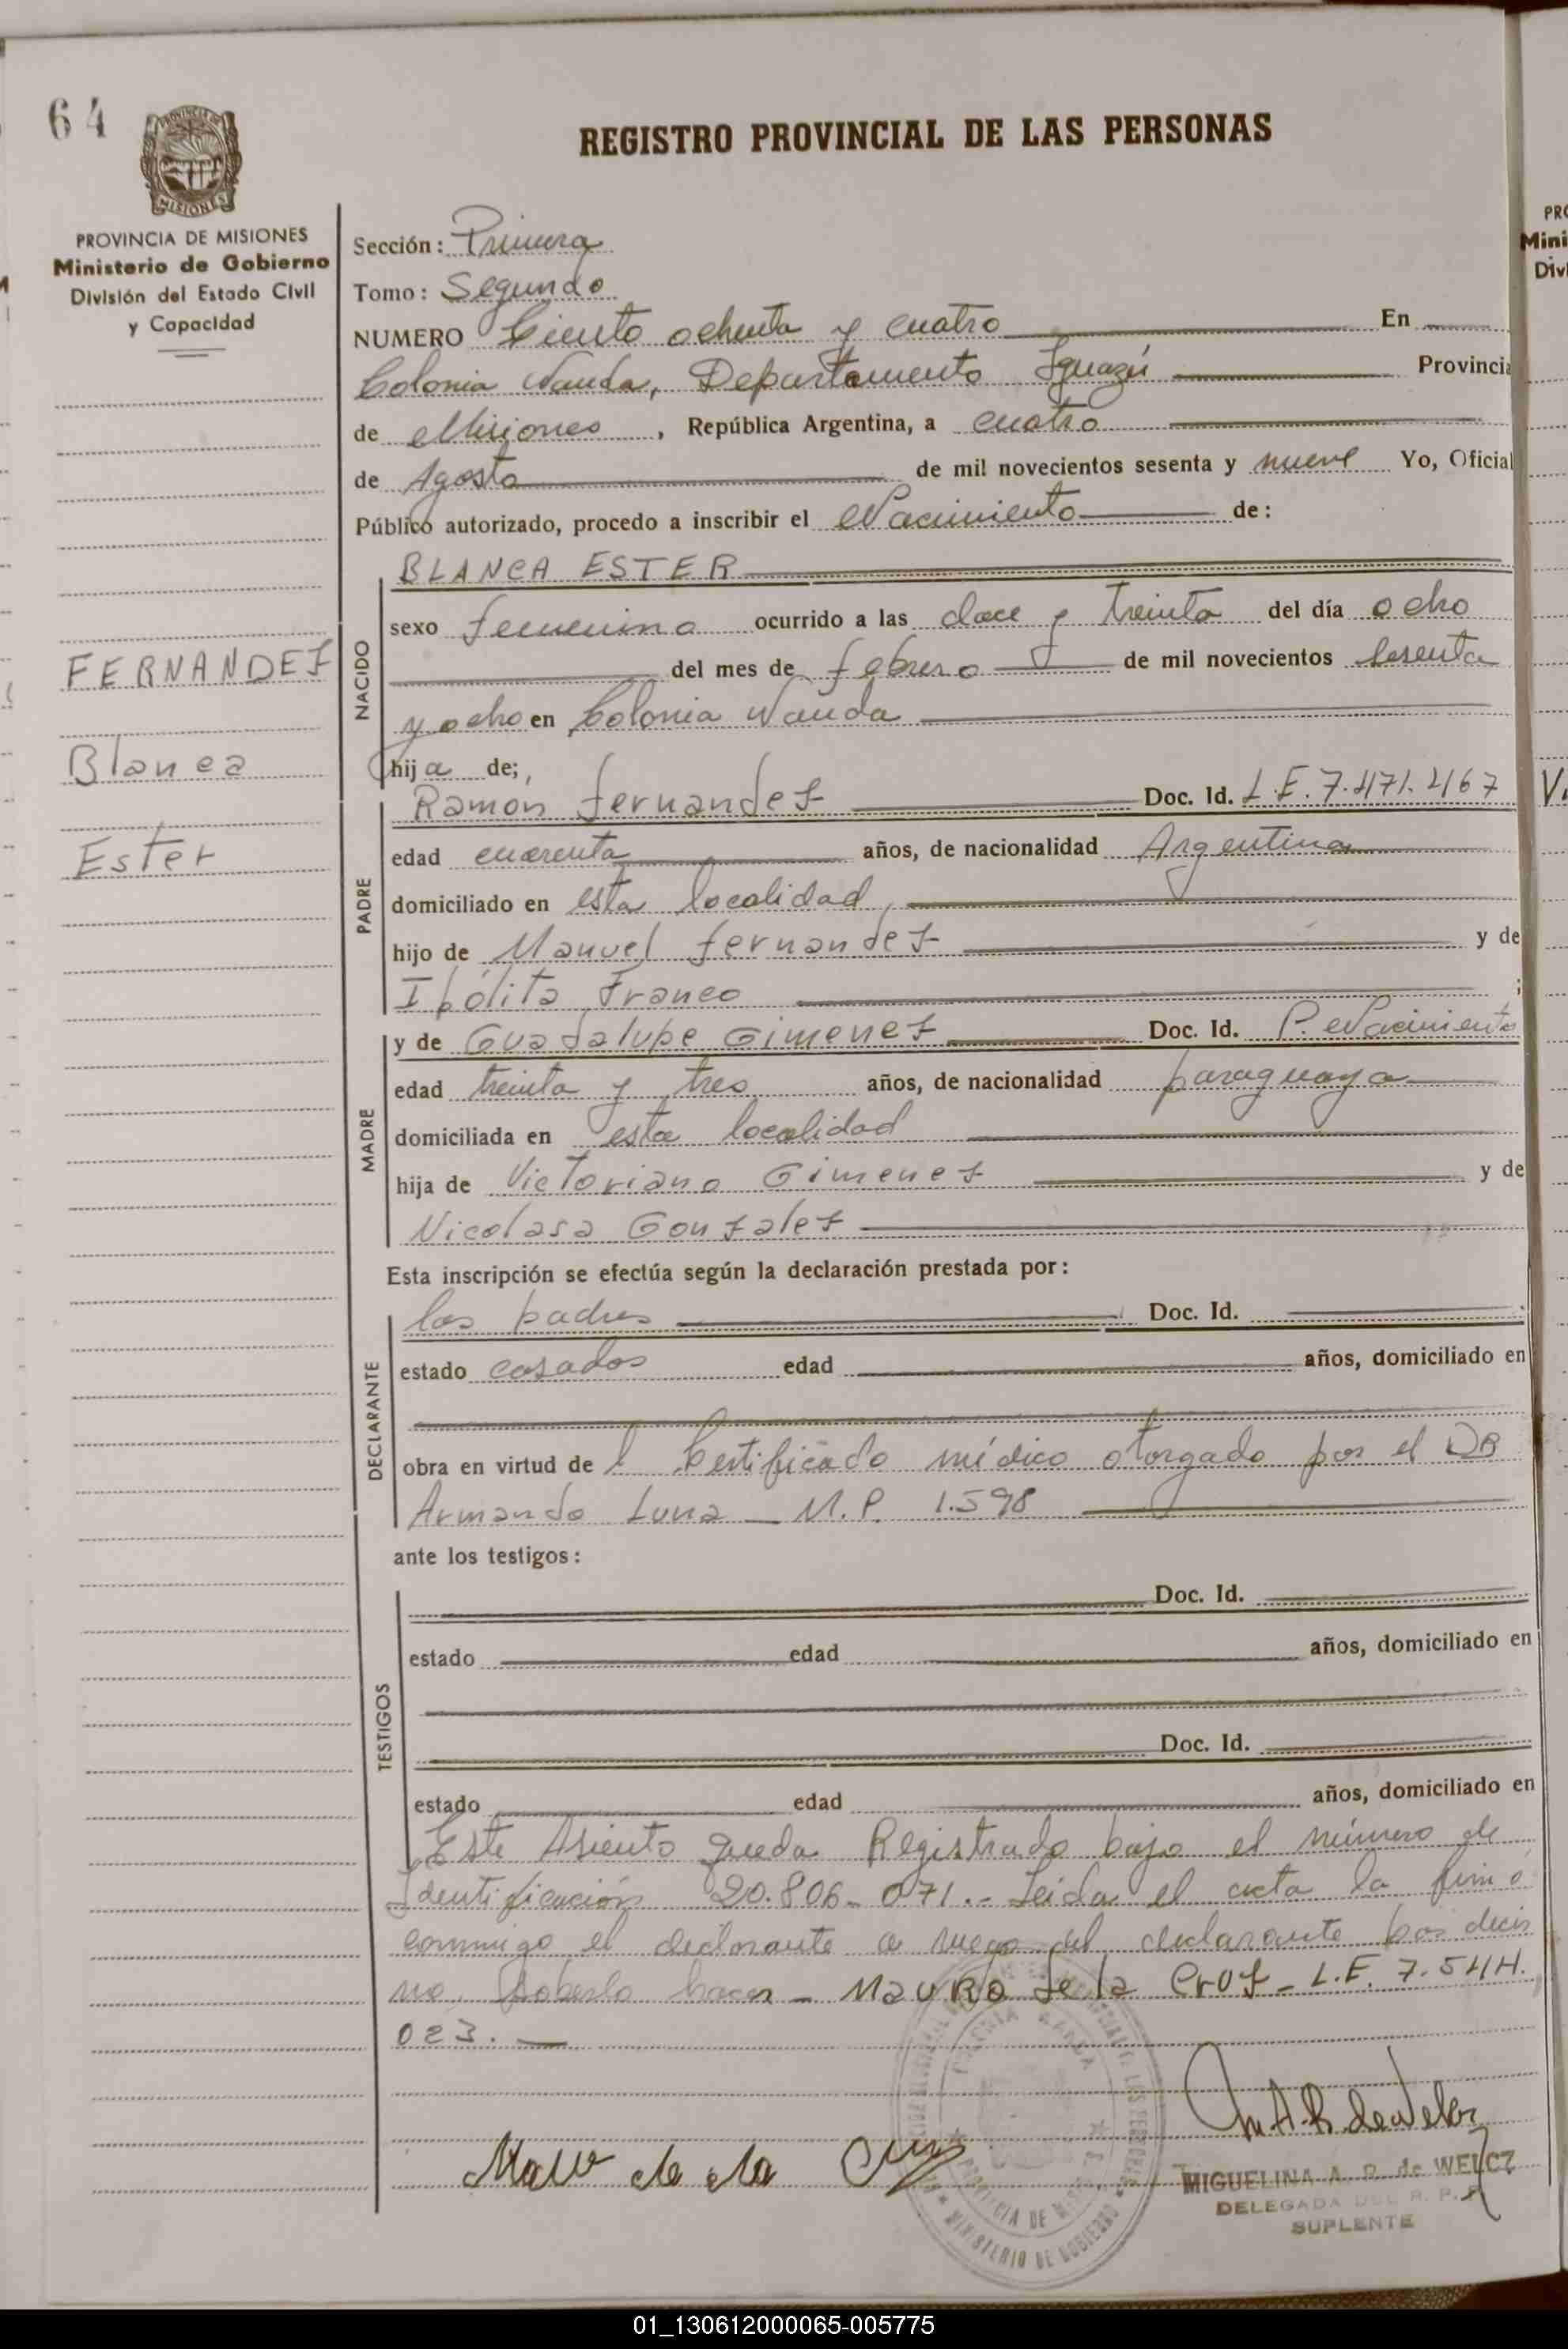 64
REGISTRO PROVINCIAL DE LAS PERSONAS
MISIONES
PROVINCIA DE MISIONES
Ministerio de Gobierno
División del Estado Civil
y Capacidad
Sección: Primera
Tomo: Segundo
NUMERO Ciento ochenta y cuatro En
Colonia Wanda, Departamento Iguazú Provincia
de Misiones, República Argentina, a cuatro
de Agosto de mil novecientos sesenta y nueve Yo, Oficial
Público autorizado, procedo a inscribir el Nacimiento de:
BLANCA ESTER
NACIDO
sexo femenino ocurrido a las doce y treinta del día ocho
del mes de febrero de mil novecientos sesenta
y ocho en Colonia Wanda
hija de;
FERNANDEZ
Blanca
Ester
PADRE
Ramón fernandez Doc. Id. L.E. 7.471.467
edad cuarenta años, de nacionalidad Argentina
domiciliado en esta localidad,
hijo de Manuel fernandez y de
Ipólita Franco ;
MADRE
y de Guadalupe Gimenez Doc. Id. P. Nacimiento
edad treinta y tres años, de nacionalidad paraguaya
domiciliada en esta localidad
hija de Victoriano Gimenez y de
Nicolasa Gonzalez
Esta inscripción se efectúa según la declaración prestada por:
DECLARANTE
los padres Doc. Id.
estado casados edad años, domiciliado en
obra en virtud del Certificado médico otorgado por el DR
Armando Luna _ M.P. 1.598
ante los testigos:
TESTIGOS
Doc. Id.
estado edad años, domiciliado en
Doc. Id.
estado edad años, domiciliado en
Este Asiento queda Registrado bajo el número de
Identificación 20.806-071.- Leida el acta la firmó
conmigo el declarante a ruego del declarante por decir
no saberlo hacer - MAURO de la Cruz - L.E. 7.544.
023. -
Mauro de la Cruz
MIGUELINA A. R. de WELCZ
DELEGADA DEL R. P. P.
SUPLENTE
MINISTERIO DE GOBIERNO
01_130612000065-005775